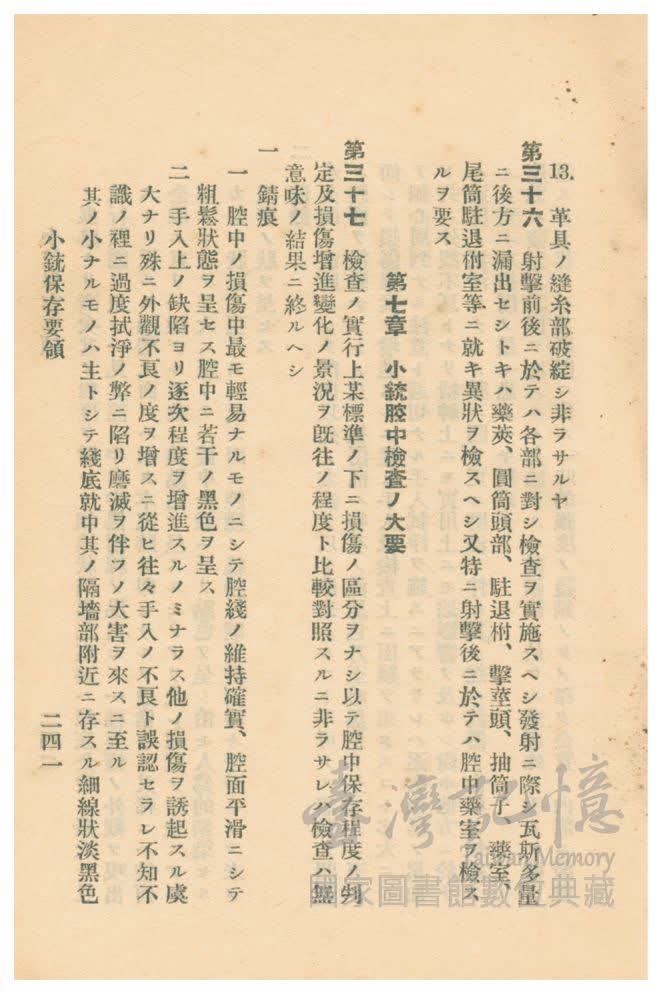 13. 革具ノ縫糸部破綻シ非ラサルヤ
第三十六 射擊前後ニ於テハ各部ニ對シ檢查ヲ實施スヘシ發射ニ際シ瓦斯多量
ニ後方ニ漏出セシトキハ藥莢、圓筒頭部、駐退柎、擊莖頭、抽筒子、藥室、
尾筒駐退柎室等ニ就キ異狀ヲ檢スヘシ又特ニ射擊後ニ於テハ腔中藥室ヲ檢ス
ルヲ要ス
第七章 小銃腔中檢查ノ大要
第三十七 檢查ノ實行上某標準ノ下ニ損傷ノ區分ヲナシ以テ腔中保存程度ノ判
定及損傷增進變化ノ景況ヲ旣往ノ程度ト比較對照スルニ非ラサレハ檢查ハ無
意味ノ結果ニ終ルヘシ
一 錆痕
一 腔中ノ損傷中最モ輕易ナルモノニシテ腔綫ノ維持確實、腔面平滑ニシテ
粗鬆狀態ヲ呈セス腔中ニ若干ノ黑色ヲ呈ス
二 手入上ノ缺陷ヨリ逐次程度ヲ增進スルノミナラス他ノ損傷ヲ誘起スル虞
大ナリ殊ニ外觀不良ノ度ヲ增スニ從ヒ往々手入ノ不良ト誤認セラレ不知不
識ノ裡ニ過度拭淨ノ弊ニ陷リ磨滅ヲ伴フノ大害ヲ來スニ至ル
其ノ小ナルモノハ主トシテ綫底就中其ノ隔墻部附近ニ存スル細線狀淡黑色
小銃保存要領
二四一
臺灣記憶
Taiwan Memory
國家圖書館數位典藏